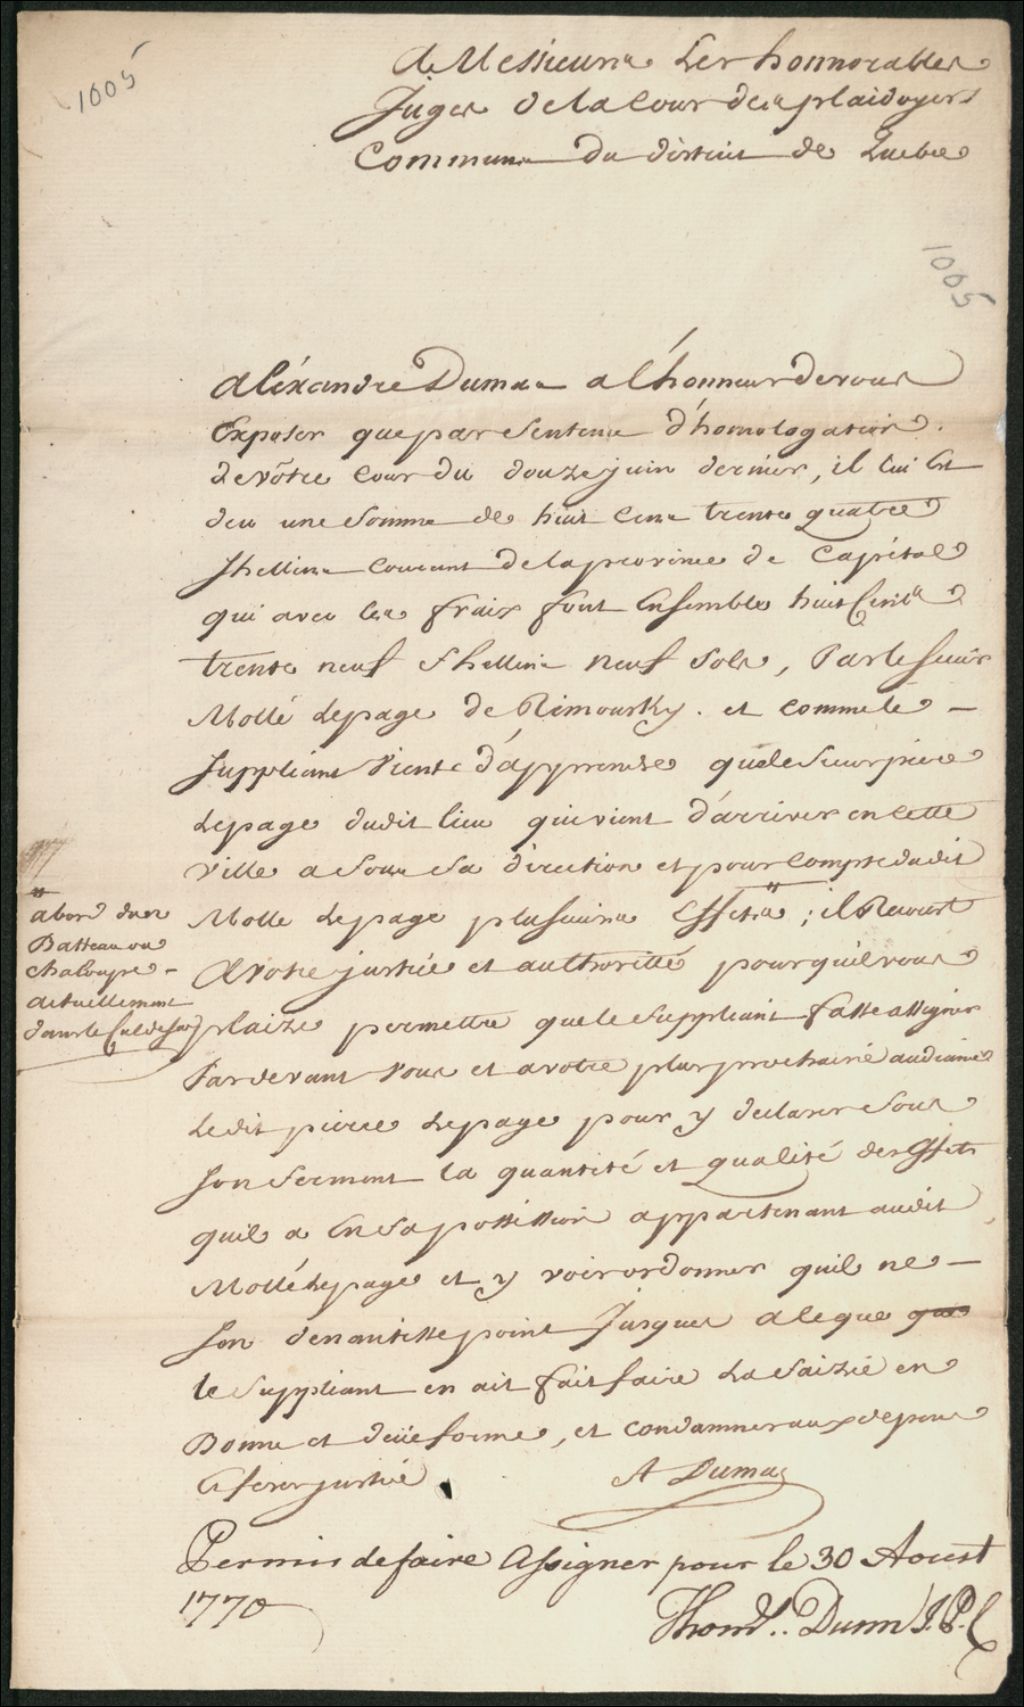 1005
A Messieurs Les honnorables
Juges de la Cour des plaidoyers
Communs du district de Quebec
1005
Aléxandre Dumas a l'honneur de vous
Exposer que par Sentence d'homologation
de vôtre Cour du douze juin dernier, il lui Est
deu une Somme de huit Cens trente quatre
Shellins Courant de la province de Capital
qui avec les fraix font Ensemble huit Cents
trente neuf Shellins neuf Sols, Par le sieur
Mollé Lepage de Rimousky. et comme le
Suppliant Vient d'apprendre que le Sieur piere
Lepage dudit lieu qui vient d'arriver en cette
Ville a Sous Sa direction et pour Compte dudit
Molle Lepage plusieurs Effets " ; il Recourt
" abord d'un
Batteau ou
chaloupe
actuellement
dans le Cul de Sac
A votre justice et authorité pour qu'il vous
plaize permettre que le Suppliant fasse assigner
Pardevant Vous et a votre plus prochaine audiance
Ledit piere Lepage pour y declarer Sous
Son Serment la quantité et qualité des Effets
quil a En Sa possession appartenant audit
Mollé Lepage et y voir ordonner quil ne
Son denantisse point Jusques a ce que que
le Suppliant en ait fait faire La Saizie en
Bonne et deüe forme, et condamner aux depens
Et ferez justice
A Dumas
Permis de faire Assigner pour le 30 Aoust
1770
Thoms. Dunn J.P.C